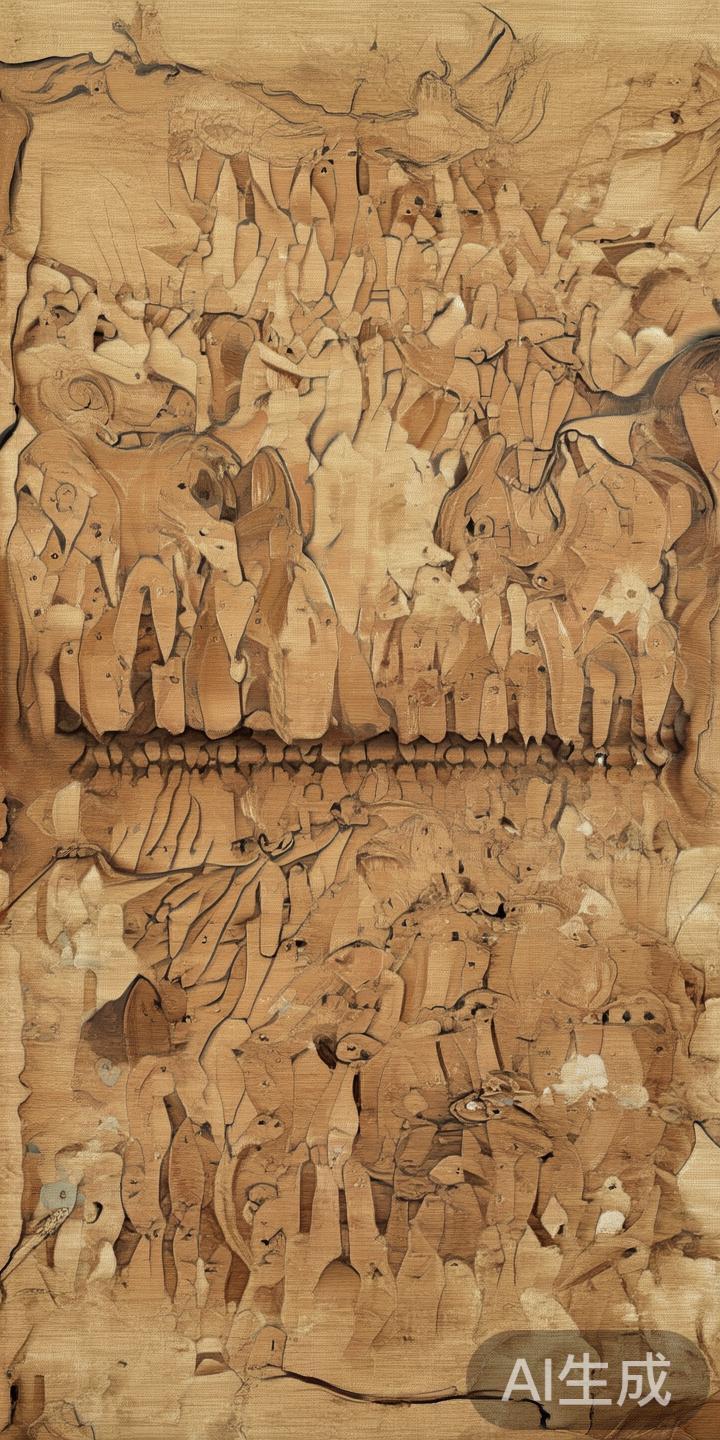 AI生成